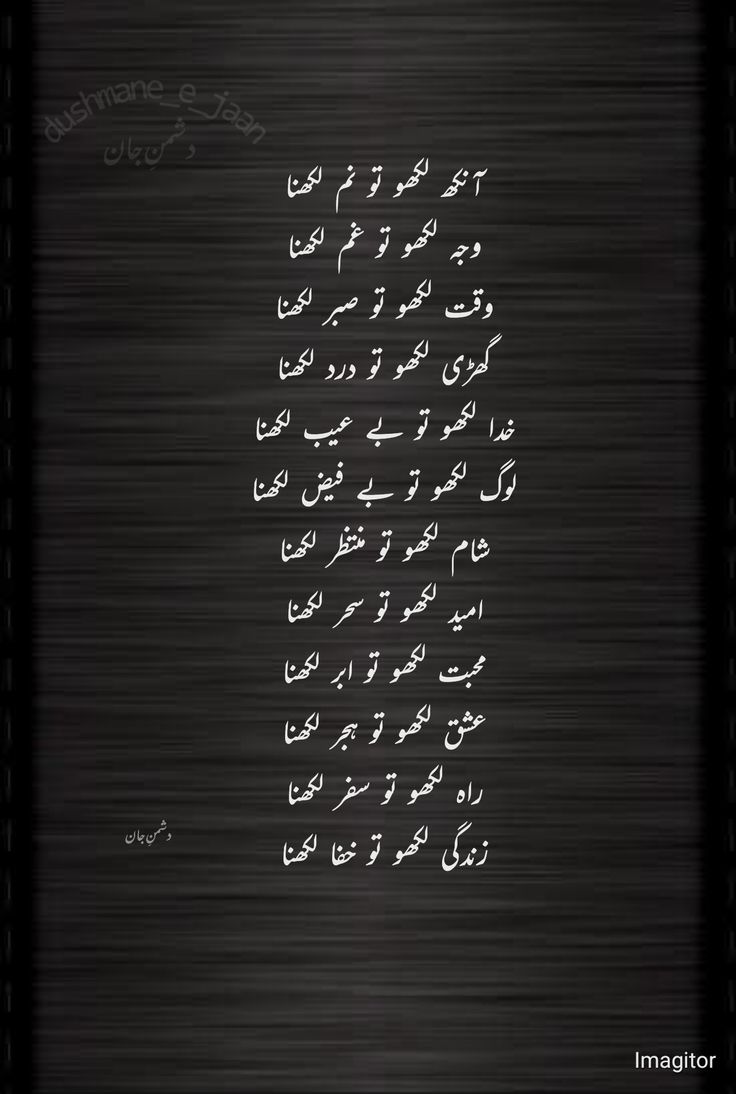 dushmane_e_jaan
دشمنِ جان
آنکھ لکھو تو نم لکھنا
وجہ لکھو تو غم لکھنا
وقت لکھو تو صبر لکھنا
گھڑی لکھو تو درد لکھنا
خدا لکھو تو بے عیب لکھنا
لوگ لکھو تو بے فیض لکھنا
شام لکھو تو منتظر لکھنا
امید لکھو تو سحر لکھنا
محبت لکھو تو ابر لکھنا
عشق لکھو تو ہجر لکھنا
راہ لکھو تو سفر لکھنا
دشمنِ جان
زندگی لکھو تو خفا لکھنا
Imagitor